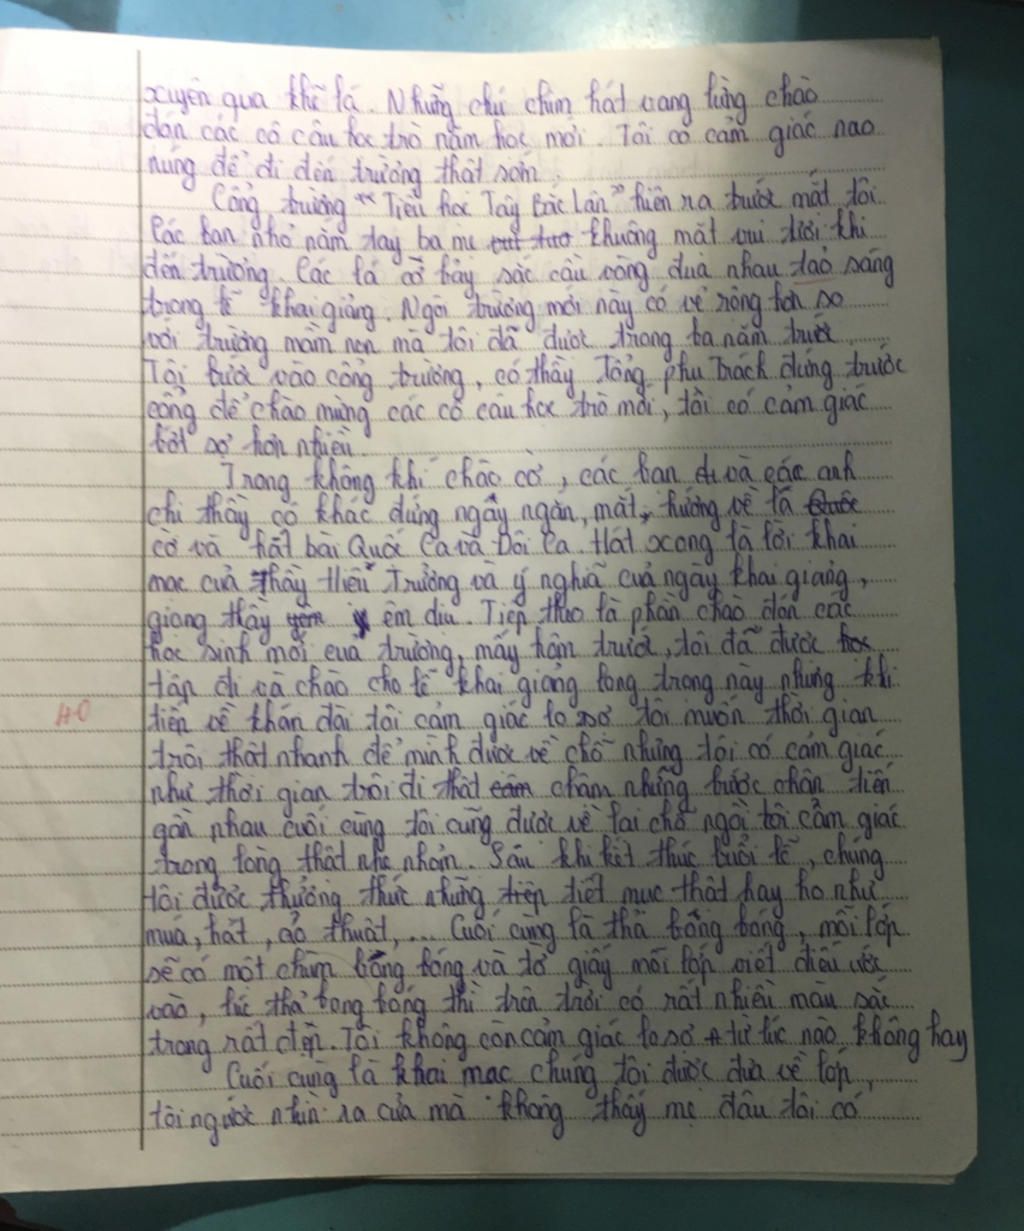 xuyên qua khẽ lá. Những chú chim hát vang lừng chào
đón các cô cậu học trò năm học mới. Tôi có cảm giác nao
núng để đi đến trường thật sớm.
Cổng trường "Tiểu học Tây Bắc Lân" hiện ra trước mắt tôi.
Các bạn nhỏ nắm tay ba mẹ khuông mặt vui tươi khi
đến trường. Các lá cờ bảy sắc cầu vòng đua nhau tảo sáng
trong lễ khai giảng. Ngôi trường mới này có vẻ rộng hơn so
với trường mầm non mà tôi đã được trong ba năm trước.
Tôi bước vào cổng trường, có thầy Tổng phụ Trách đứng trước
cổng để chào mừng các cô cậu học trò mới, tôi có cảm giác
bớt sợ hơn nhiều.
Trong không khí chào cờ, các bạn và các anh
chị thầy cô khác đứng ngây ngắn, mắt hướng về lá
cờ và hát bài Quốc Ca và Đội Ca. Hát xong là lời khai
mạc của thầy Hiệu Trưởng và ý nghĩa của ngày khai giảng,
giọng thầy êm dịu. Tiếp theo là phần chào đón các
học sinh mới của trường, mấy hôm trước, tôi đã được
tập đi và chào cho lễ khai giảng long trọng này nhưng khi
tiến về khán đài tôi cảm giác lo sợ tôi muốn thời gian
trôi thật nhanh để mình được về chỗ nhưng tôi có cảm giác
như thời gian trôi đi thật chậm những bước chân tiến
gần nhau cuối cùng tôi cũng được về lại chỗ ngồi tôi cảm giác
trong lòng thật nhẹ nhỏm. Sau khi kết thúc buổi lễ, chúng
tôi được thưởng thức những tiết mục thật hay ho như
múa, hát, ảo thuật,... Cuối cùng là thả bông bóng, mỗi lớp
sẽ có một chùm bông bóng và tờ giấy mỗi lớp viết điều ước
vào, lúc thả bong bóng thì trên trời có rất nhiều màu sắc
trong rất đẹp. Tôi không còn cảm giác lo sợ từ lúc nào không hay
Cuối cùng là khai mạc chúng tôi được đưa về lớp,
tôi ngước nhìn ra cửa mà không thấy mẹ đâu tôi có